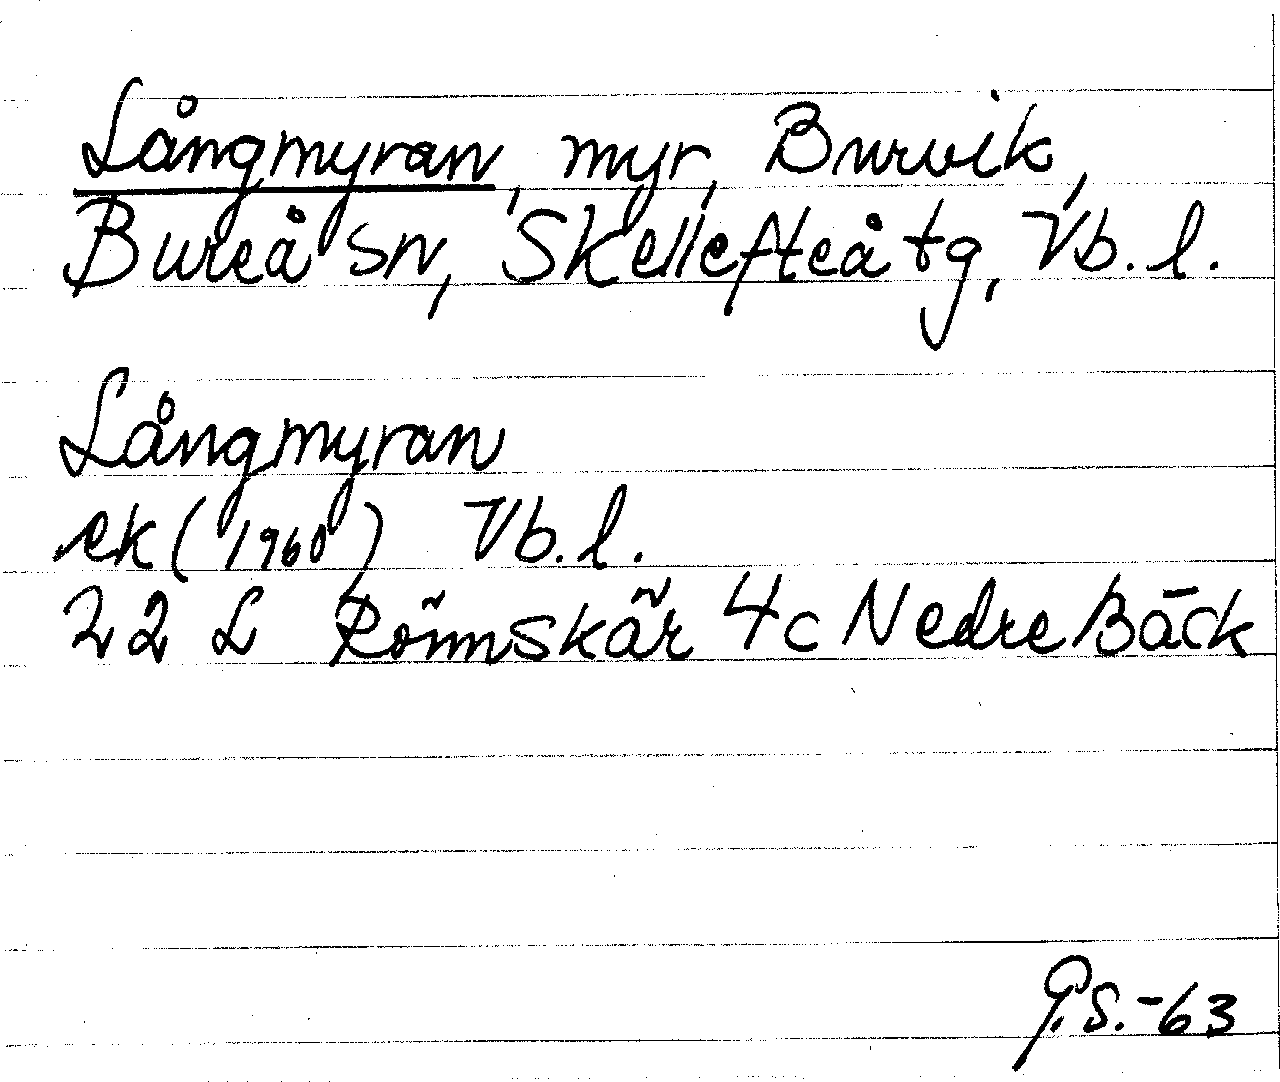 Långmyran, myr, Burvik,
Bureå sn, Skellefteå tg, Vb. l.
Långmyran
ek (1960) Vb. l.
22 L Rönnskär 4c Nedre Bäck
G.S.-63